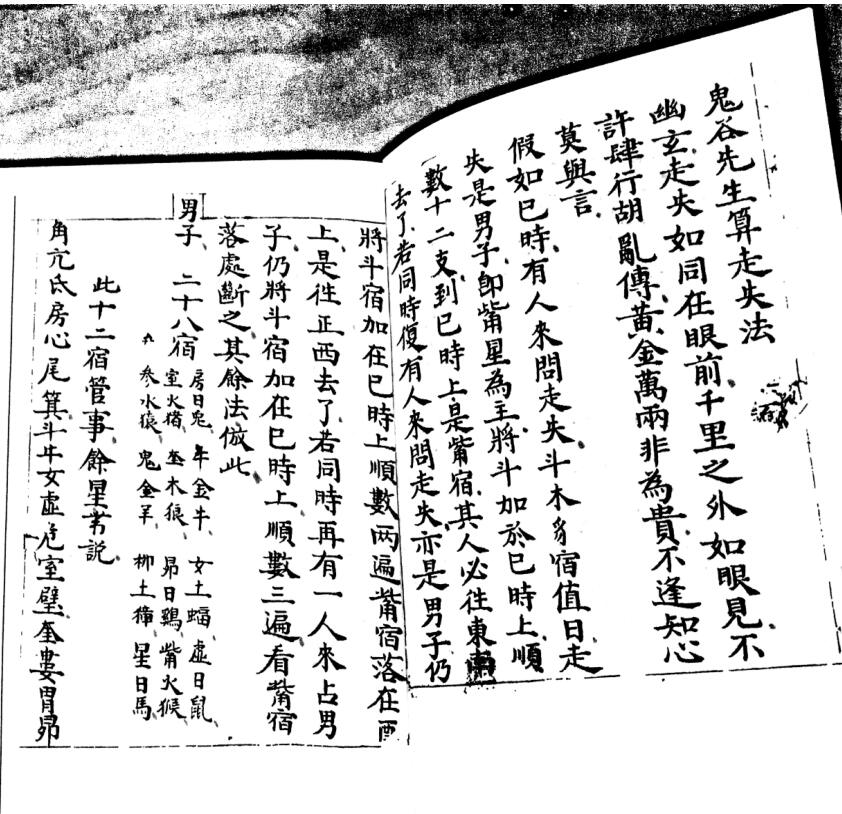 鬼谷先生算走失法
幽玄走失如同在眼前千里之外如眼見不
許肆行胡亂傳黃金萬兩非為貴不逢知心
莫與言
假如巳時有人來問走失斗木豸宿值日走
失是男子即觜星為主將斗加於巳時上順
數十二支到巳時上是觜宿其人必往東南
去了若同時復有人來問走失亦是男子仍
將斗宿加在巳時上順數两遍觜宿落在酉
上是往正西去了若同時再有一人來占男
子仍將斗宿加在巳時上順數三遍看觜宿
落處斷之其餘法倣此
男子 二十八宿 房日兎 牛金牛 女土蝠 虛日鼠
室火猪 奎木狼 昴日鷄 觜火猴
參水猿 鬼金羊 柳土獐 星日馬
此十二宿管事餘星若説
角亢氐房心尾箕斗牛女虛危室壁奎婁胃昴